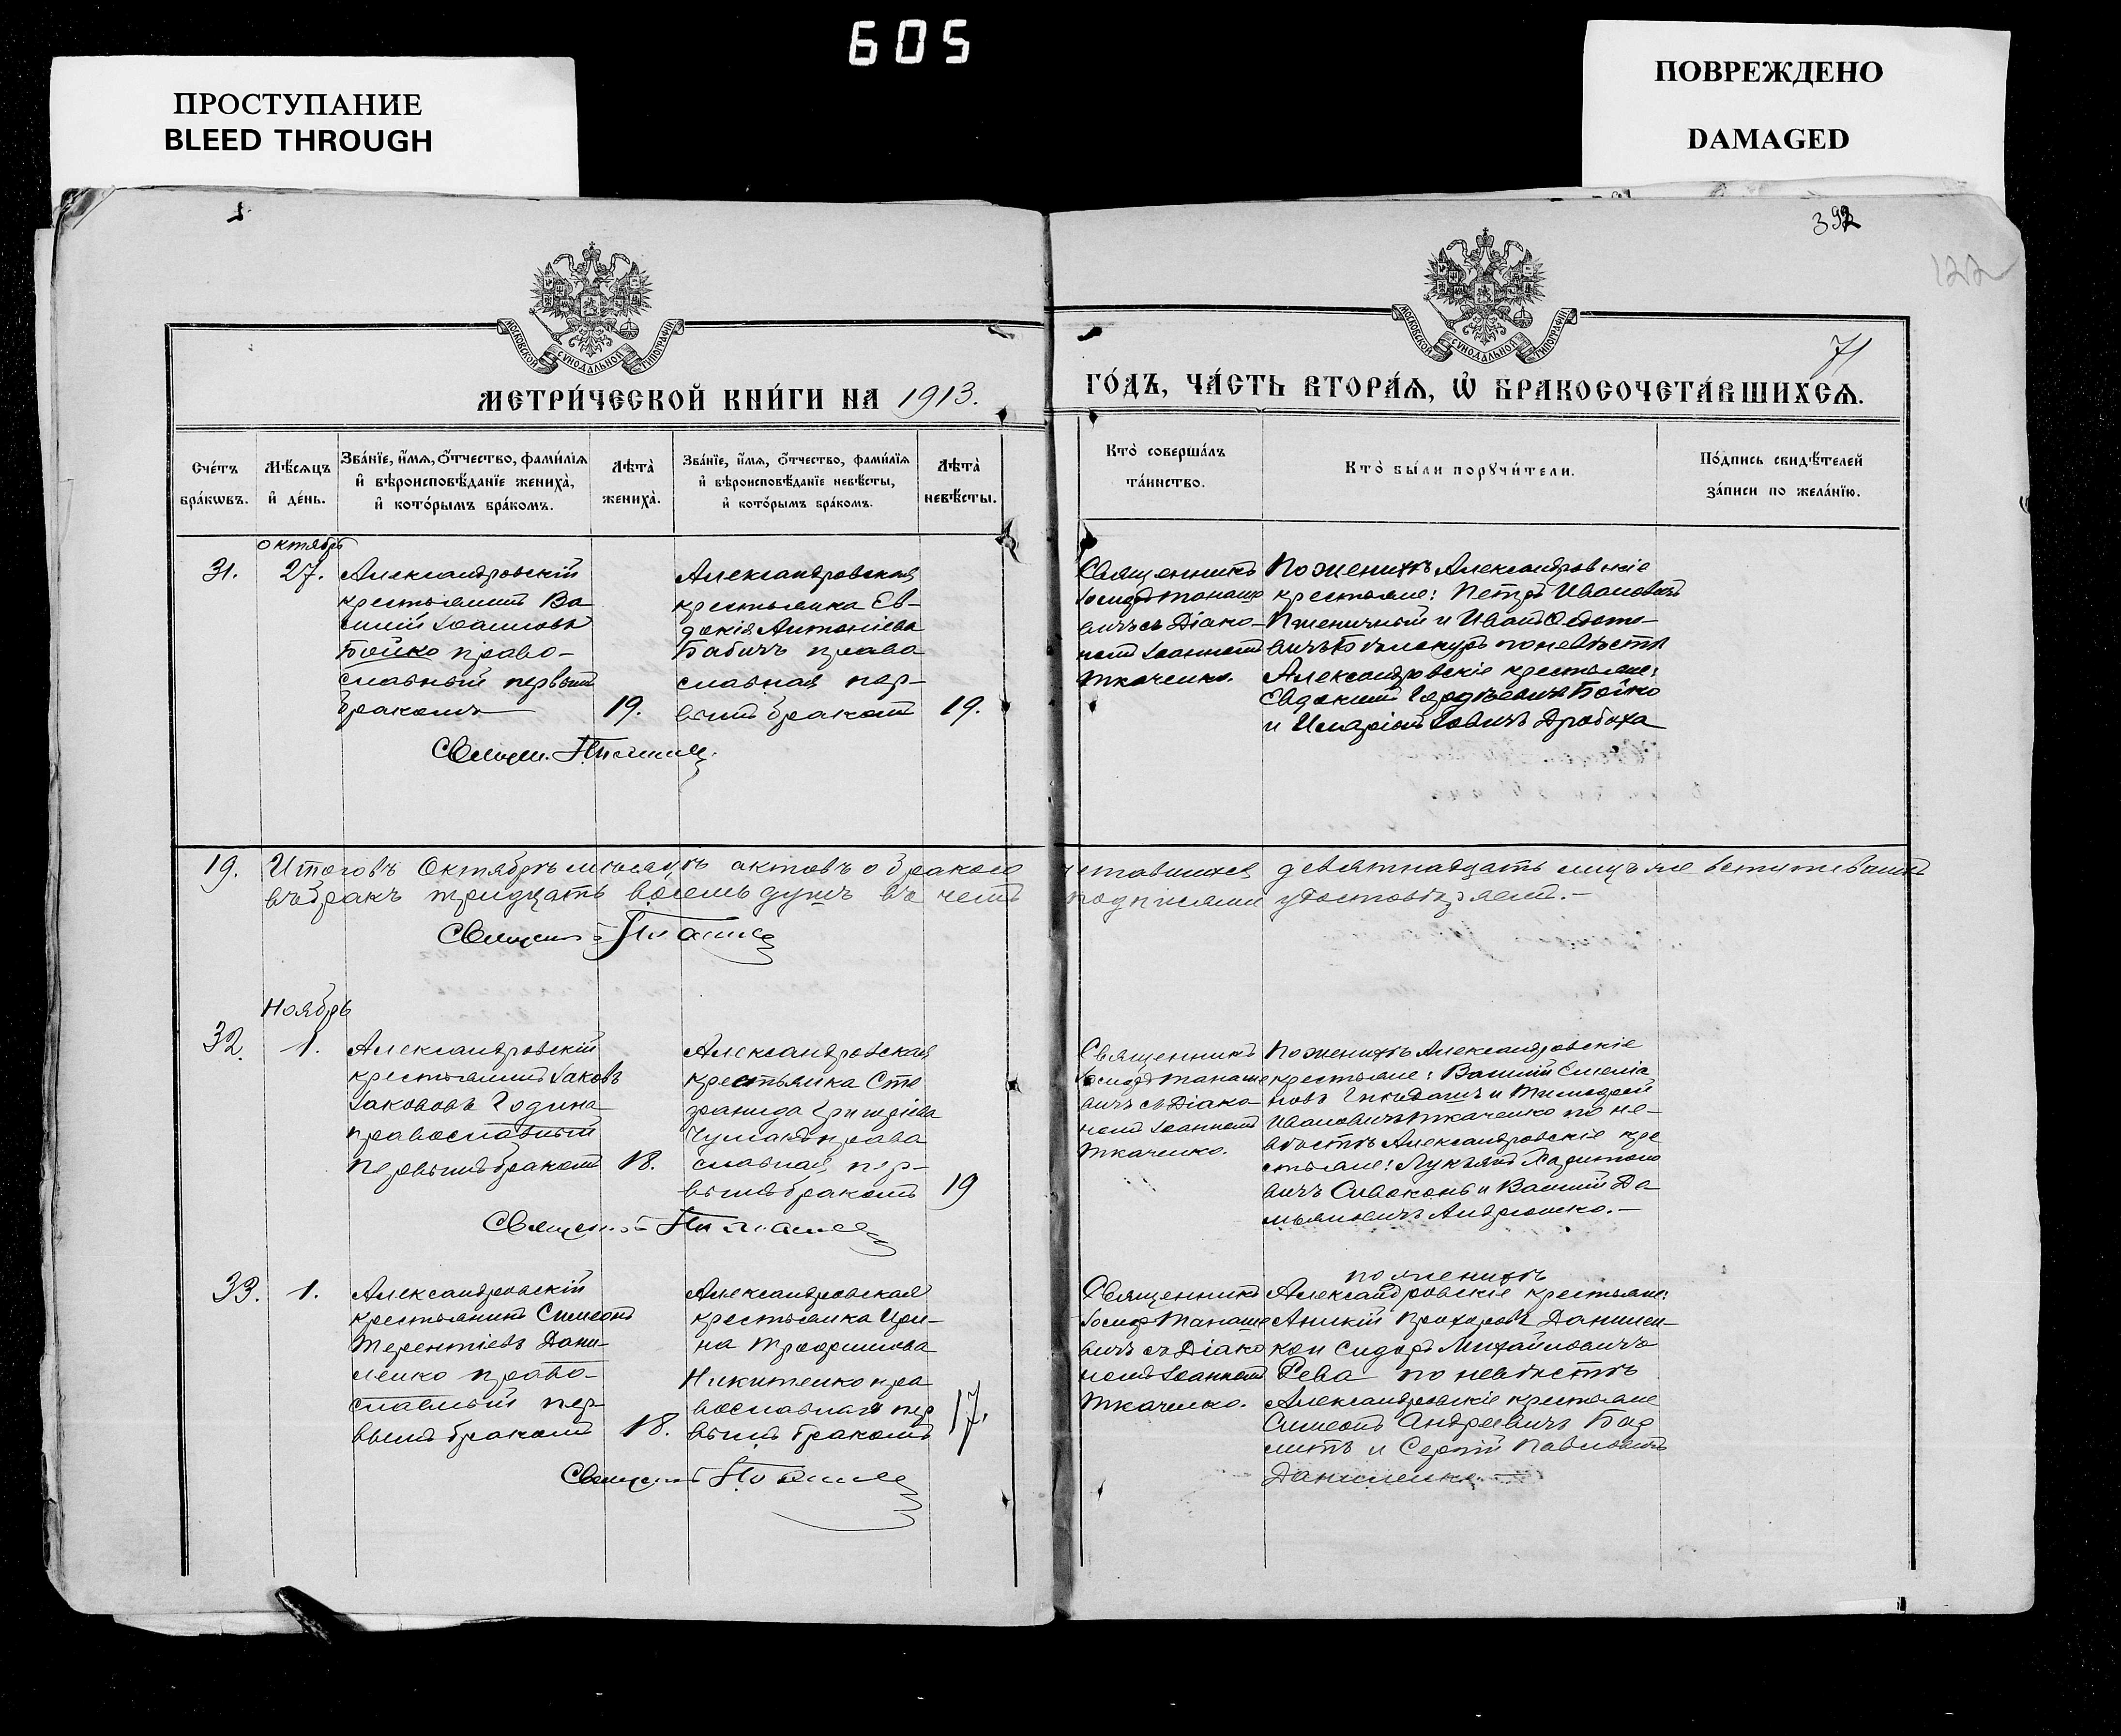 605
ПРОСТУПАНИЕ
BLEED THROUGH
ПОВРЕЖДЕНО
DAMAGED
392
122
71
МОСКОВСКОЙ СѴНОДАЛЬНОЙ ТИПОГРАФІИ
МОСКОВСКОЙ СѴНОДАЛЬНОЙ ТИПОГРАФІИ
МЕТРИ́ЧЕСКОЙ КНИ́ГИ НА 1913.
ГО́ДЪ, ЧА́СТЬ ВТОРА́Ѧ, Ѡ҆ БРАКОСОЧЕТА́ВШИХСѦ.
Счéтъ
брáкѡвъ.
Мѣ́сяцъ
и҆ дéнь.
Звáнїе, и҆́мѧ, ѻ҆́тчество, фамѝлїѧ
и҆ вѣроисповѣ́данїе женихà,
и҆ котóрымъ брáкомъ.
Лѣтà
женихà.
Звáнїе, и҆́мѧ, ѻ҆́тчество, фамѝлїѧ
и҆ вѣроисповѣ́данїе невѣ́сты,
и҆ котóрымъ брáкомъ.
Лѣтà
невѣ́сты.
Ктò совершáлъ
тáинство.
Ктò бы́ли порꙋчи́тели.
Пóдпись свидѣ́телей
зáписи по желáнїю.
октябрь
31.
27.
Александровскій
крестьянинъ Ва
силій Іоанновъ
Бойко право-
славный первымъ
бракомъ
19.
Александровская
крестьянка Ев-
докія Антоніева
Бабичъ право
славная пер-
вымъ бракомъ
19.
Священникъ
Іосифъ Танаше
вичъ съ Діако-
номъ Іоанномъ
Ткаченко.
По женихѣ Александровскіе
крестьяне: Петръ Ивановичъ
Пшеничный и Иванъ
по невѣстѣ
Александровскіе крестьяне:
Евдокимъ Гордѣевичъ Бойко
и Иларіонъ Іовичъ Дробаха
Священ.
19.
Итого въ Октябрѣ мѣсяцѣ актовъ о бракосо
четавшихся девятнадцать лицъ же вступившихъ
въ бракъ тридцать восемь душъ въ чемъ
подписями удостовѣряемъ.-
Ноябрь
32.
1.
Александровскій
крестьянинъ Іаковъ
Іаковъ Година
православный
первымъ бракомъ
18.
Александровская
крестьянка Сте
фанида Григоріева
Чумакъ право
славная пер-
вымъ бракомъ
19
Священникъ
Іосифъ Танаше
вичъ съ Діако
номъ Іоанномъ
Ткаченко.
По женихѣ Александровскіе
крестьяне: Василій Симеоно
и Тимофей
Ивановичъ Ткаченко по не-
вѣстѣ Александровскіе кре
стьяне: Лукьянъ Харитоно
вичъ Сивоконь и Василій Де
мьяновичъ Андрюшко.-
33.
1.
Александровскій
крестьянинъ Симеонъ
Терентіевъ Дани-
ленко право-
славный пер-
вымъ бракомъ
18.
Александровская
крестьянка Ири-
на Трофимова
Никитенко пра
вославная пер
вымъ бракомъ
17.
Священникъ
Іосифъ Танаше
вичъ съ Діако
номъ Іоанномъ
Ткаченко.
по женихѣ
Александровскіе крестьяне:
Аникій Прохоровъ Данилен-
ко и Сидоръ Михайловичъ
Рева по невѣстѣ
Александровскіе крестьяне
Симеонъ Андреевичъ
и Сергій Павловичъ
Даниленко.-